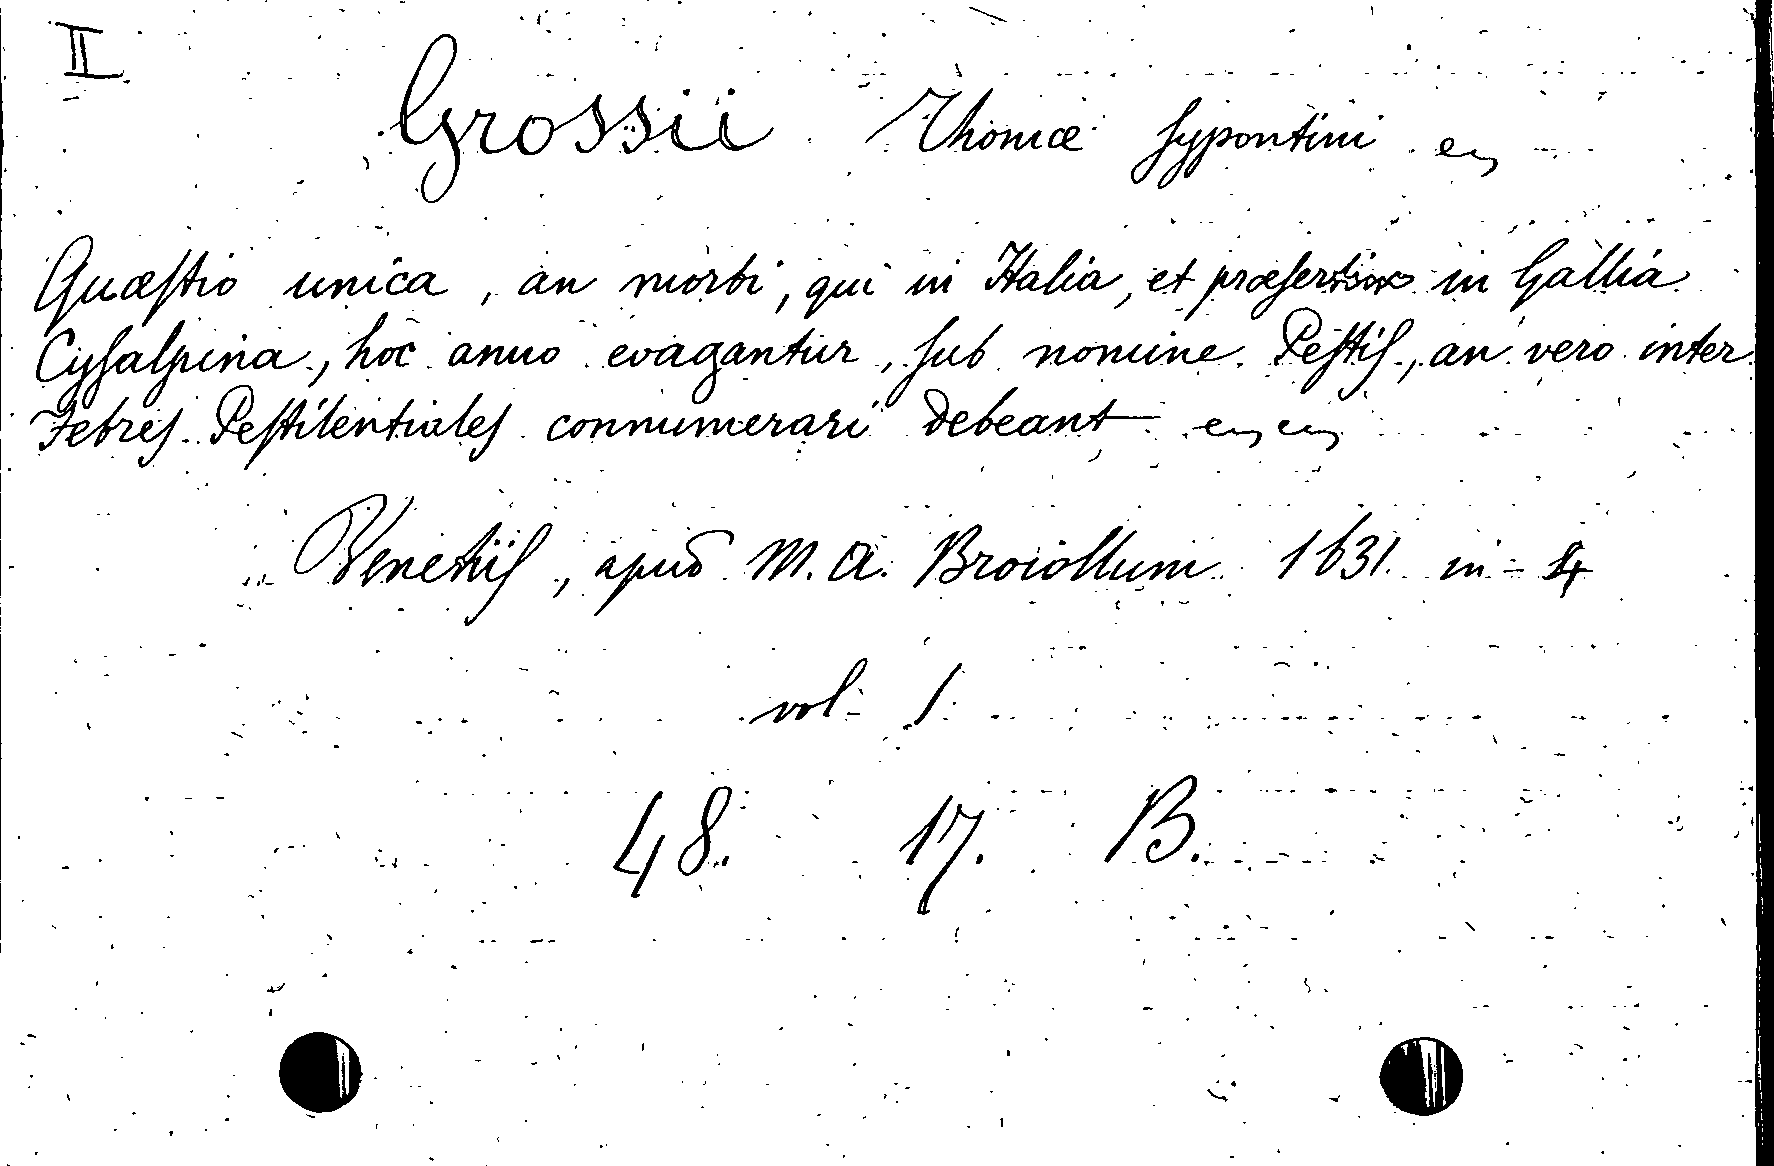 II
Grossii Thomæ Sypontini
Quæstio unica, an morbi, qui in Italia, et præsertim in Gallia
Cysalpina, hoc anno evagantur, sub nomine Pestis, an vero inter
Febres Pestilentiales connumerari debeant
Venetiis, apud M. A. Broiollum 1631 in-4
vol. 1
48. 17. B.